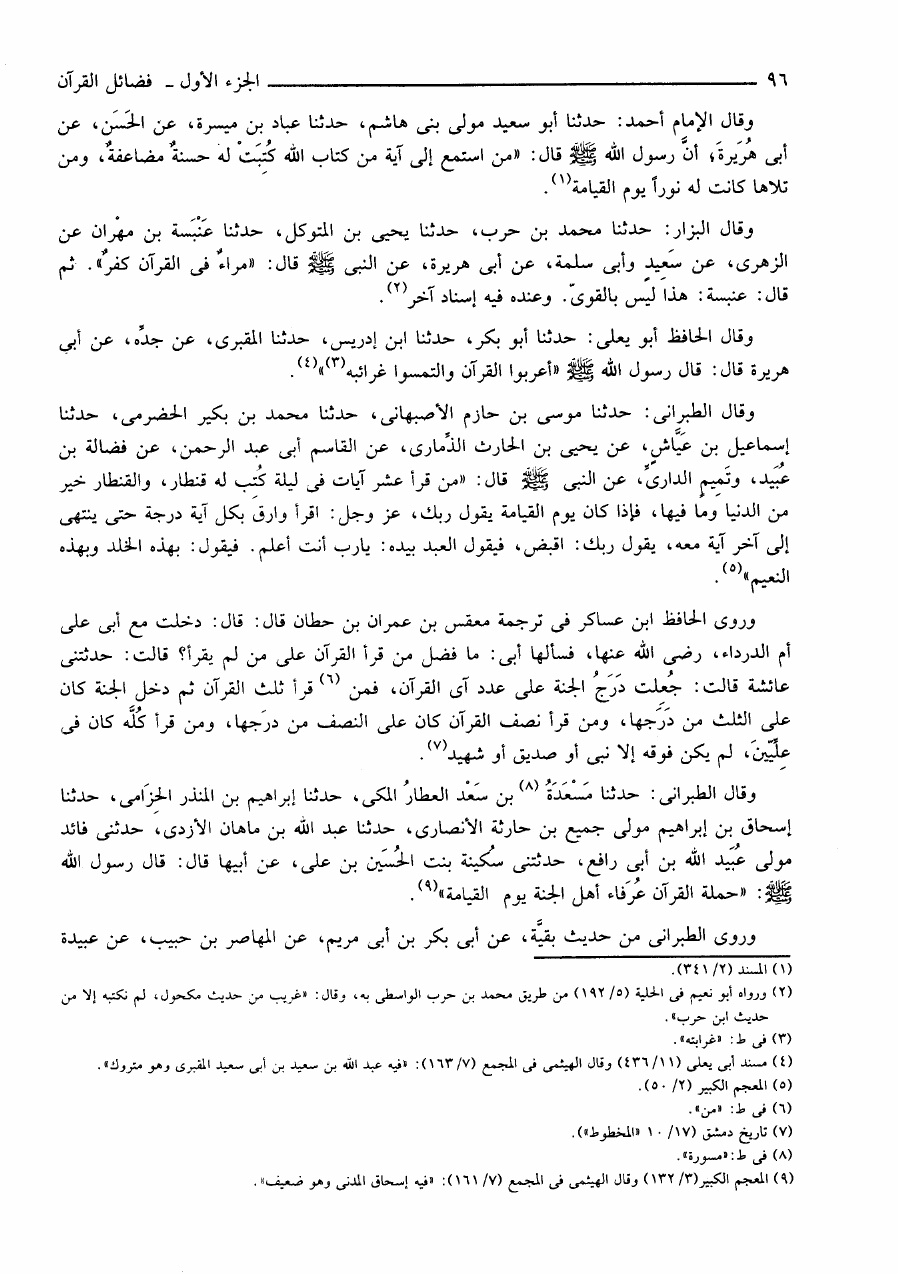 ٩٦ ــــــــــــــــــــــــــــــــــــــــ الجزء الأول ــ فضائل القرآن
وقال الإمام أحمد: حدثنا أبو سعيد مولى بنى هاشم، حدثنا عباد بن ميسرة، عن الحَسَن، عن
أبى هُرَيرةَ؛ أنَّ رسول الله ﷺ قال: «من استمع إلى آية من كتاب الله كُتِبَتْ له حسنةٌ مضاعفةٌ، ومن
تلاها كانت له نوراً يوم القيامة(١).
وقال البزار: حدثنا محمد بن حرب، حدثنا يحيى بن المتوكل، حدثنا عَنْبَسة بن مهْران عن
الزهرى، عن سَعِيدٍ وأبى سلمة، عن أبى هريرة، عن النبى ﷺ قال: «مراءٌ فى القرآن كفرٌ». ثم
قال: عنبسة: هذا ليْس بالقوىّ. وعنده فيه إسناد آخر(٢).
وقال الحافظ أبو يعلى: حدثنا أبو بكر، حدثنا ابن إدريس، حدثنا المقبرى، عن جدِّه، عن أبي
هريرة قال: قال رسول الله ﷺ «أعربوا القرآن والتمسوا غرائبه(٣)»(٤).
وقال الطبرانى: حدثنا موسى بن حازم الأصبهانى، حدثنا محمد بن بكير الحضرمى، حدثنا
إسماعيل بن عَيَّاشٍ، عن يحيى بن الحارث الذِّمارى، عن القاسم أبى عبد الرحمن، عن فضالة بن
عُبَيد، وتَمِيمٍ الدارىِّ، عن النبى ﷺ قال: «من قرأ عشر آيات فى ليلة كُتِب له قنطار، والقنطار خير
من الدنيا ومَا فيها، فإذا كان يوم القيامة يقول ربك، عز وجل: اقرأ وارق بكل آية درجة حتى ينتهى
إلى آخر آية معه، يقول ربك: اقبض، فيقول العبد بيده: يارب أنت أعلم. فيقول: بهذه الخلد وبهذه
النعيم»(٥).
وروى الحافظ ابن عساكر فى ترجمة معقس بن عمران بن حطان قال: قال: دخلت مع أبى على
أم الدرداء، رضى الله عنها، فسألها أبى: ما فضل من قرأ القرآن على من لم يقرأ؟ قالت: حدثتنى
عائشة قالت: جُعلت دَرَجُ الجنة على عدد آى القرآن، فمن (٦) قرأ ثلث القرآن ثم دخل الجنة كان
على الثلث من دَرَجها، ومن قرأ نصف القرآن كان على النصف من درَجها، ومن قرأ كُلَّه كان فى
عِلِّيِّينَ، لم يكن فوقه إلا نبى أو صديق أو شهيد(٧).
وقال الطبرانى: حدثنا مَسْعَدَةُ (٨) بن سَعْد العطارُ المكى، حدثنا إبراهيم بن المنذر الحِزَامى، حدثنا
إسحاق بن إبراهيم مولى جميع بن حارثة الأنصارى، حدثنا عبد الله بن ماهان الأزدى، حدثنى فائد
مولى عُبَيد الله بن أبى رافع، حدثتنى سُكينة بنت الحُسَين بن على، عن أبيها قال: قال رسول الله
ﷺ: «حملة القرآن عُرَفاء أهل الجنة يوم القيامة»(٩).
وروى الطبرانى من حديث بقيَّة، عن أبى بكر بن أبى مريم، عن المهاصر بن حبيب، عن عبيدة
(١) المسند (٢/ ٣٤١).
(٢) ورواه أبو نعيم فى الحلية (٥/ ١٩٢) من طريق محمد بن حرب الواسطى به، وقال: «غريب من حديث مكحول، لم نكتبه إلا من
حديث ابن حرب».
(٣) فى ط: «غرابته».
(٤) مسند أبى يعلى (١١/ ٤٣٦) وقال الهيثمى فى المجمع (٧/ ١٦٣): «فيه عبد الله بن سعيد بن أبى سعيد المقبرى وهو متروك».
(٥) المعجم الكبير (٢/ ٥٠).
(٦) فى ط: «من».
(٧) تاريخ دمشق (١٧/ ١٠ «المخطوط»).
(٨) فى ط:«مسورة».
(٩) المعجم الكبير(٣/ ١٣٢) وقال الهيثمى فى المجمع (٧/ ١٦١): «فيه إسحاق المدنى وهو ضعيف».